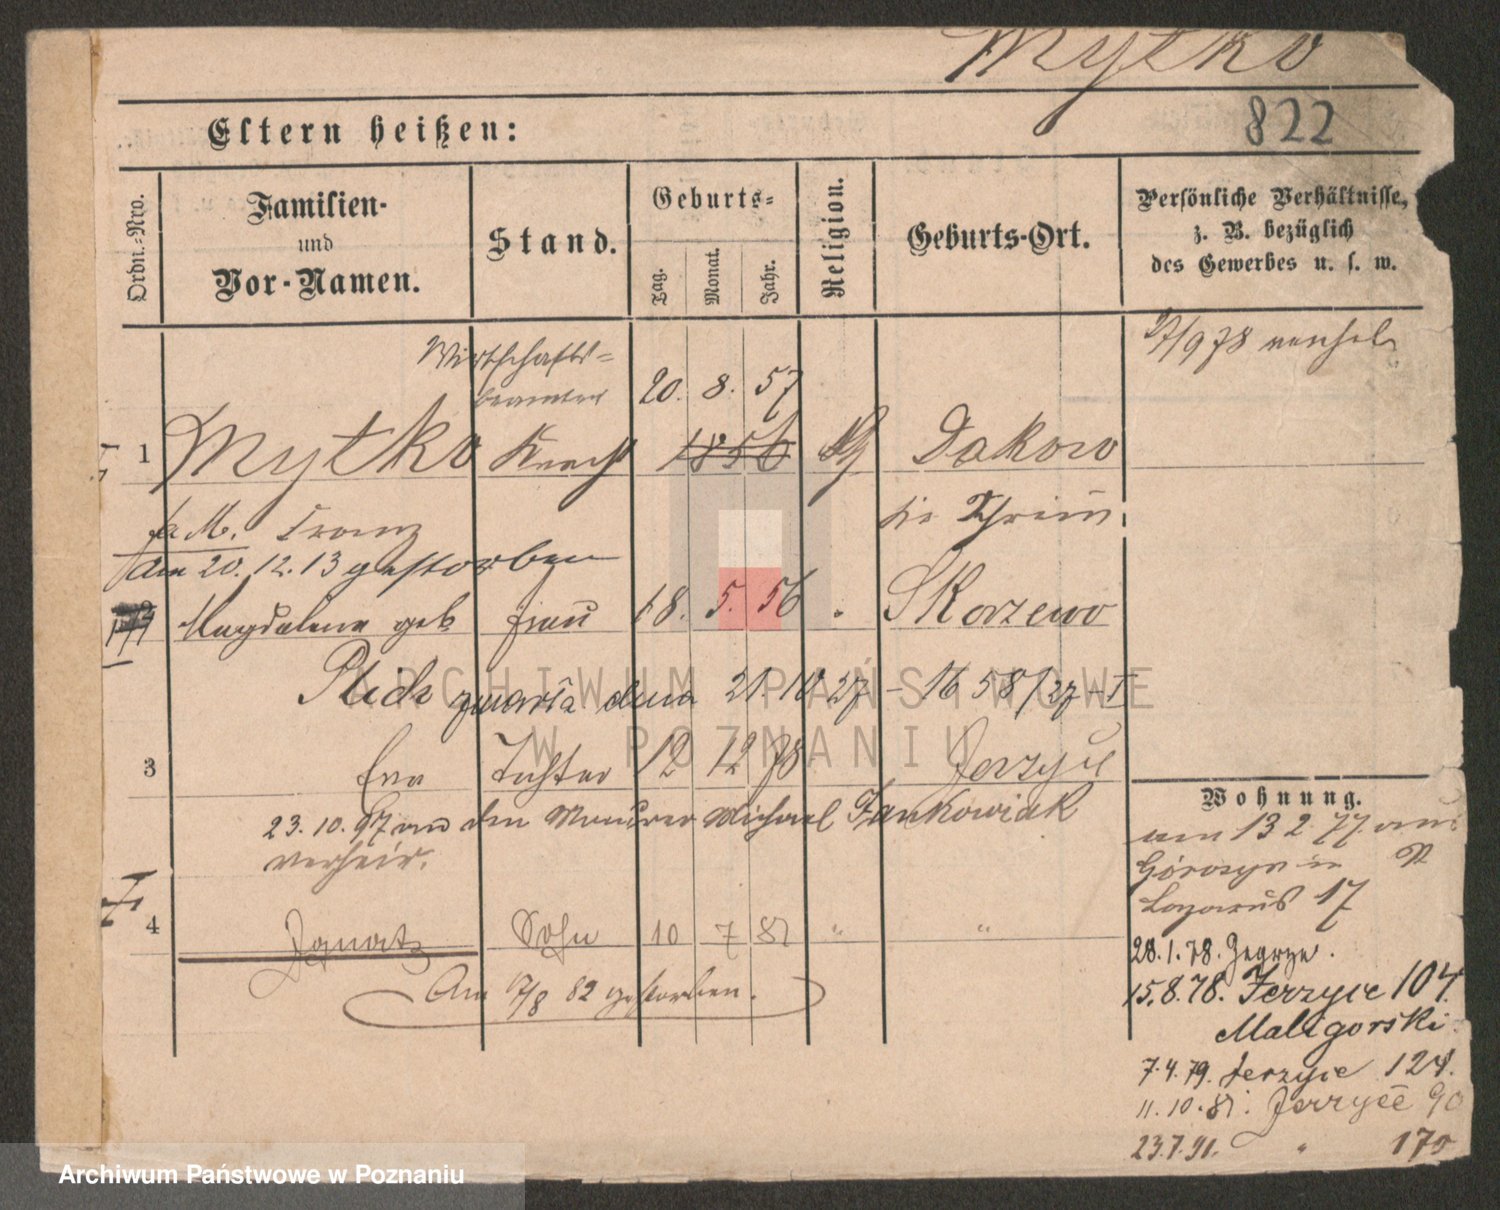 Mytko
822
Eltern heißen:
Ordn.-Nro.
Familien-
und
Vor-Namen.
Stand.
Geburts-
Tag.
Monat.
Jahr.
Religion.
Geburts-Ort.
Persönliche Verhältnisse,
z. B. bezüglich
des Gewerbes u. s. w.
Wirthschafts-
beamter 20. 8. 57
1 Mytko Knecht 1856 Dakowo
Franz
Am 20.12.13 gestorben
Magdalena geb Frau 18. 5. 56 Skorzewo
zmarła dnia 21.10 27 - 1658/27-I
3 Eva Tochter 12 12 78 Jerzyce
23.10.97 an den Maurer Michael Jankowiak
verheir.
4 Ignatz Sohn 10 7 82 " "
Am 7/8 82 gestorben.
Wohnung.
am 13 2. 77. aus
Lazarus 17
28.1.78. Zegrze.
15.8.78. Jerzyce 104.
Maligorski
7.4.79. Jerzyce 124.
11.10.81. Jerzyce 90
23.7.91. " 170
ARCHIWUM PAŃSTWOWE
W POZNANIU
Archiwum Państwowe w Poznaniu